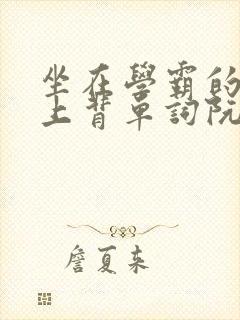 坐在學霸的
上背單詞阮
詹夏来